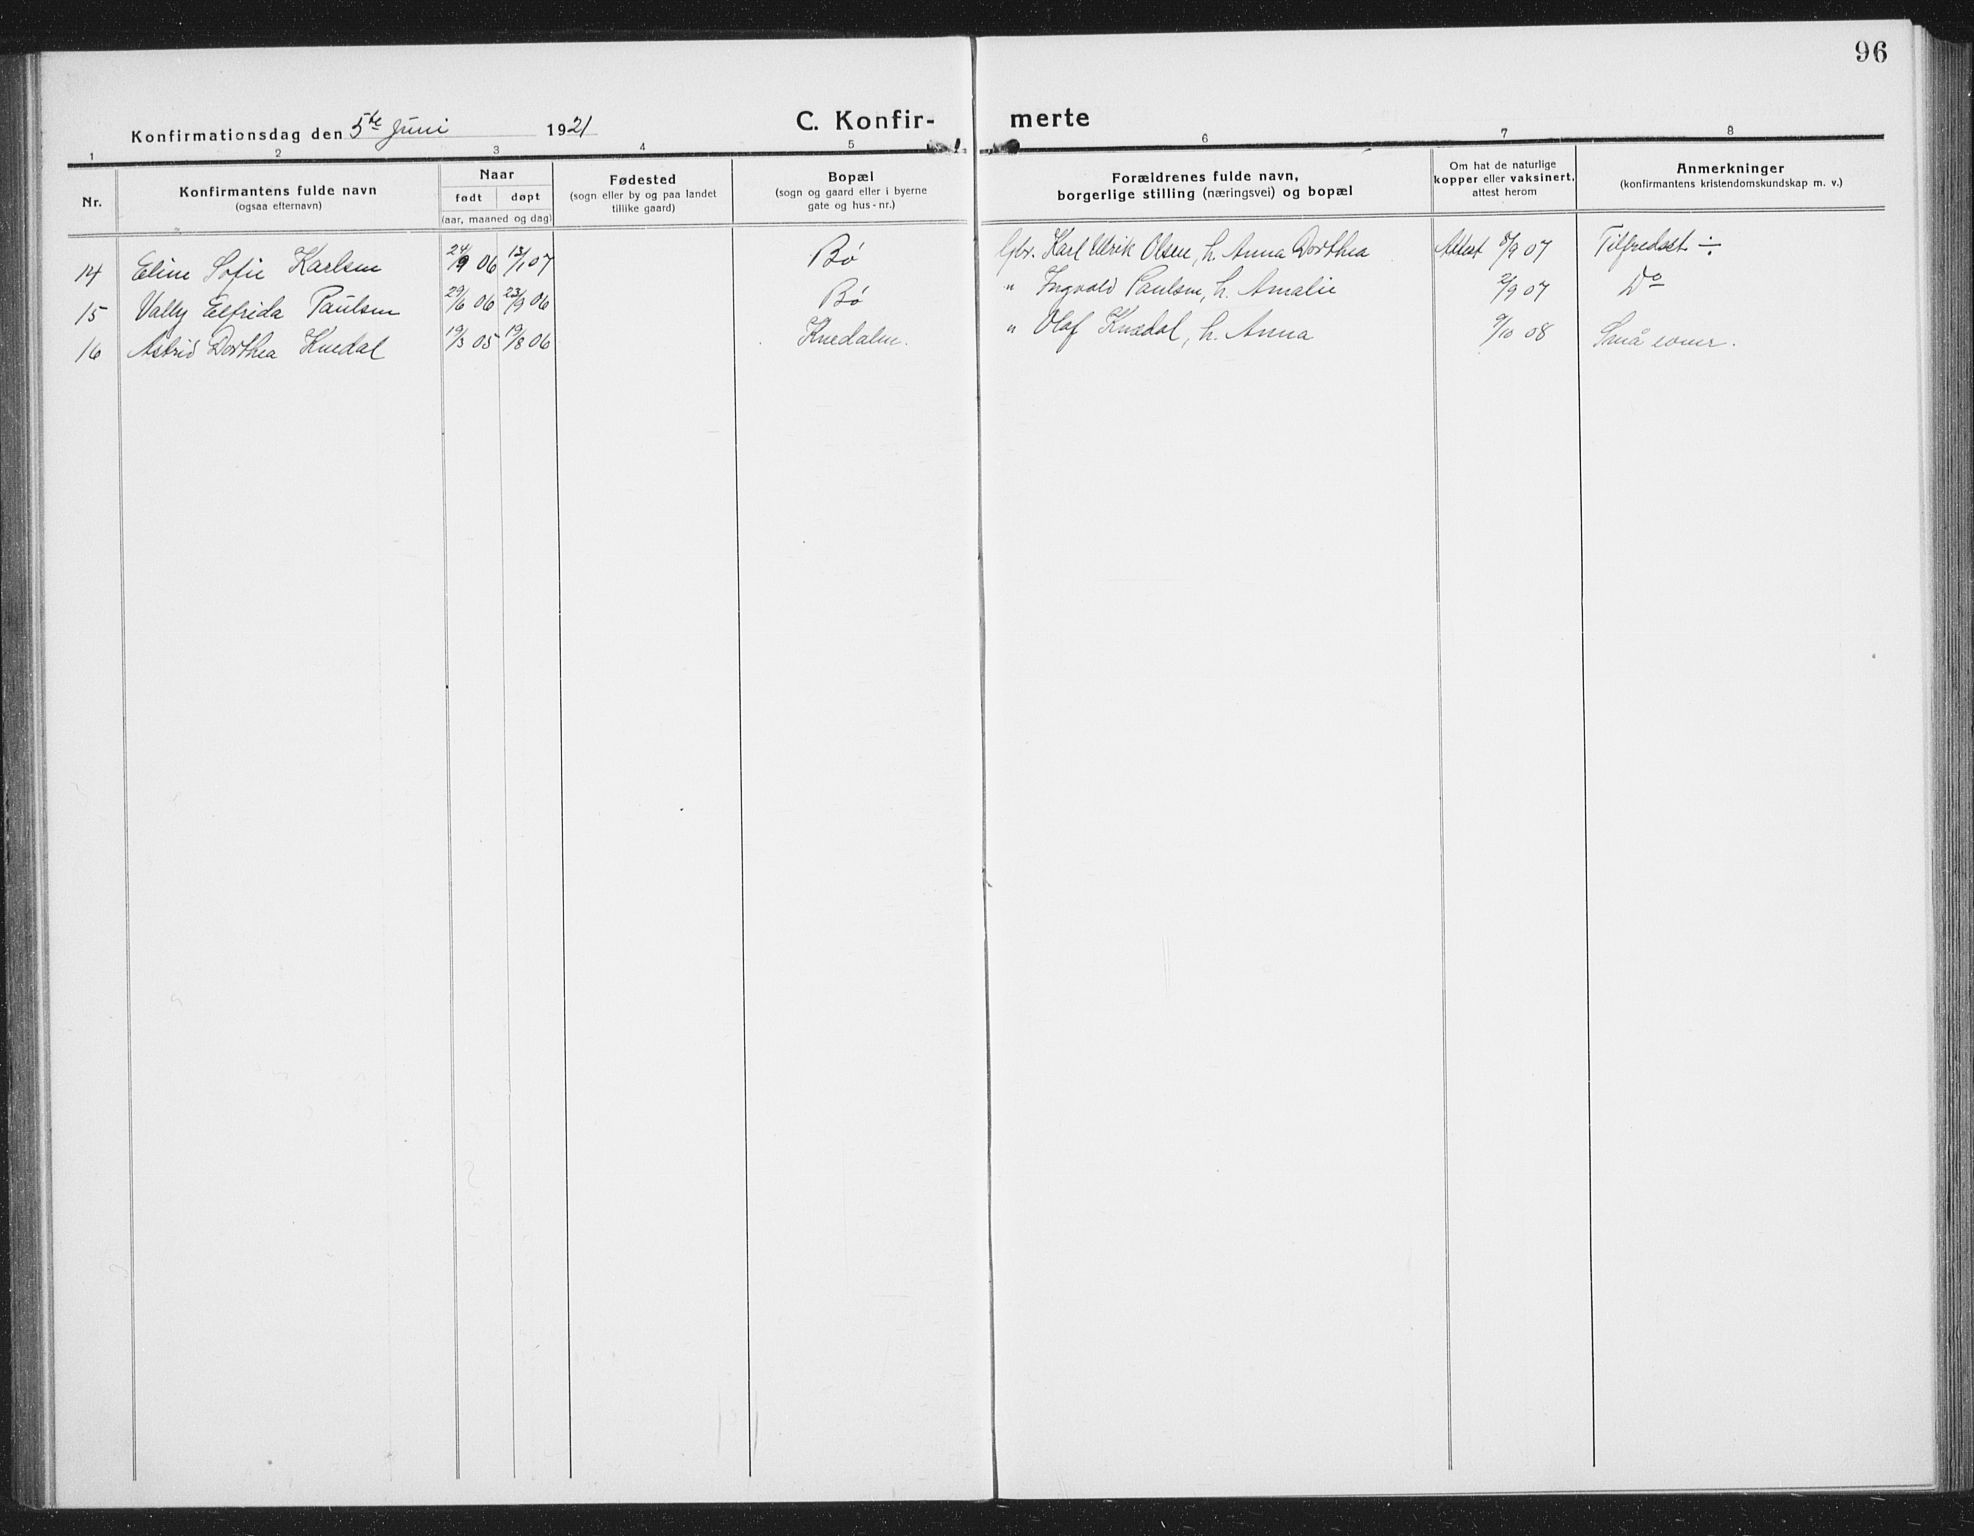 96
Konfirmationsdag den 5te Juni 1921
C. Konfir- merte
1 2 3 4 5 6 7 8
Nr.
Konfirmantens fulde navn
(ogsaa efternavn)
Naar
født døpt
(aar, maaned og dag)
Fødested
(sogn eller by og paa landet
tillike gaard)
Bopæl
(sogn og gaard eller i byerne
gate og hus-nr.)
Forældrenes fulde navn,
borgerlige stilling (næringsvei) og bopæl
Om hat de naturlige
kopper eller vaksinert,
attest herom
Anmerkninger
(konfirmantens kristendomskundskap m. v.)
14 Eline Sofie Karlsen 24/9 06 13/1 07 Bø Gbr. Karl Ulrik Olsen, h. Anna Dorthea Attest 8/9 07 Tilfredsst ÷
15 Vally Elfrida Paulsen 29/6 06 23/9 06 Bø " Ingvald Paulsen, h. Amalie 2/9 07 Do
16 Astrid Dorthea Knedal 19/3 05 19/8 06 Knedalen. " Olaf Knædal, h. Anna 9/10 08 Små evner.